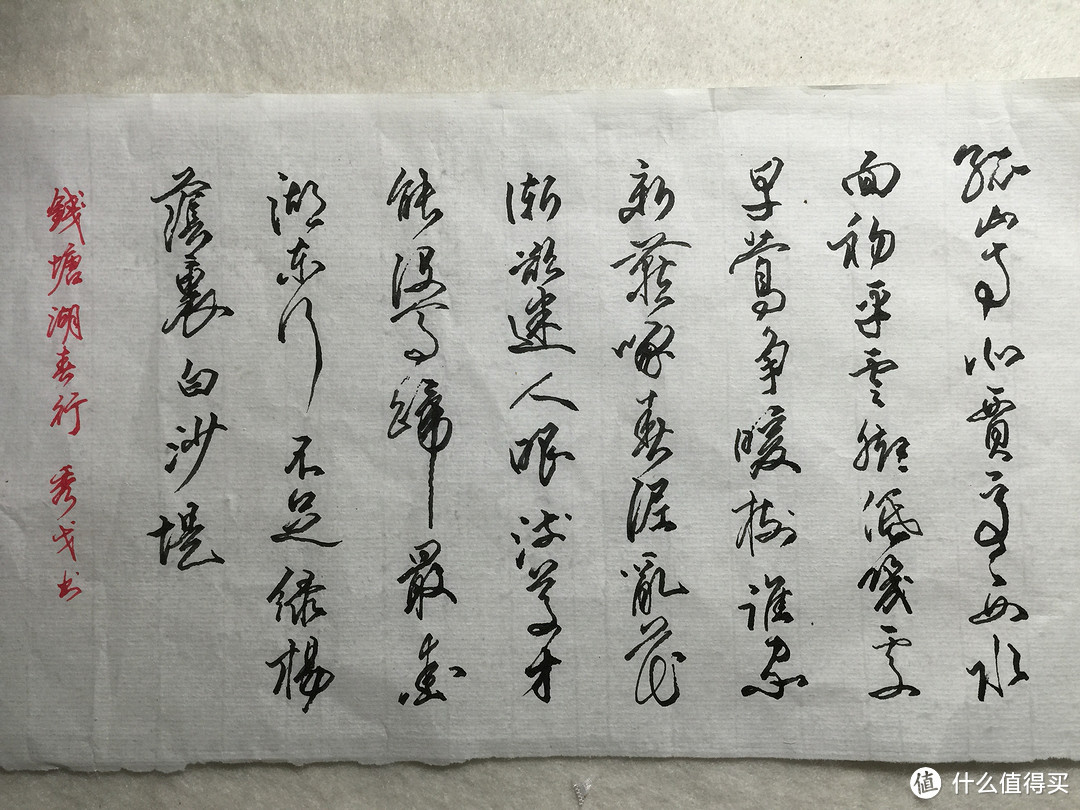 孤山寺北賈亭西水
面初平雲脚低幾處
早鶯争暖樹谁家
新燕啄春泥亂花
漸欲迷人眼浅草才
能没馬蹄最爱
湖东行不足绿杨
蔭裏白沙堤
钱塘湖春行 秀戈书
值 什么值得买